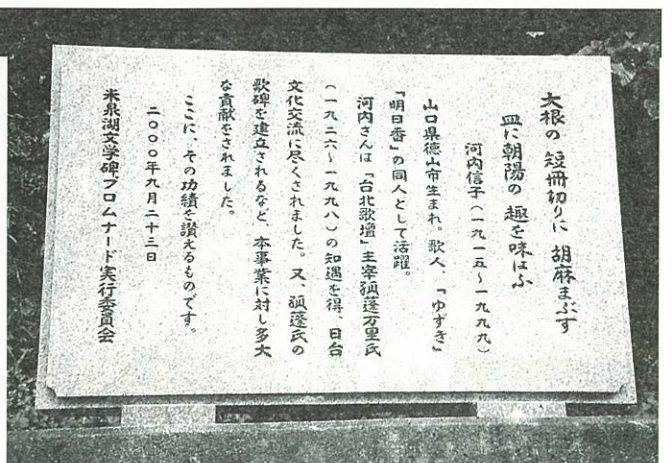 大根の 短冊切りに 胡麻まぶす
皿に朝陽の 趣を味はふ
河内信子（一九一五～一九九九）
山口県徳山市生まれ。歌人、「ゆずき」
「明日香」の同人として活躍。
河内さんは「台北歌壇」主宰孤蓬万里氏
（一九二六～一九九八）の知遇を得、日台
文化交流に尽くされました。又、孤蓬氏の
歌碑を建立されるなど、本事業に対し多大
な貢献をされました。
ここに、その功績を讃えるものです。
二〇〇〇年九月二十三日
米泉湖文学碑プロムナード実行委員会